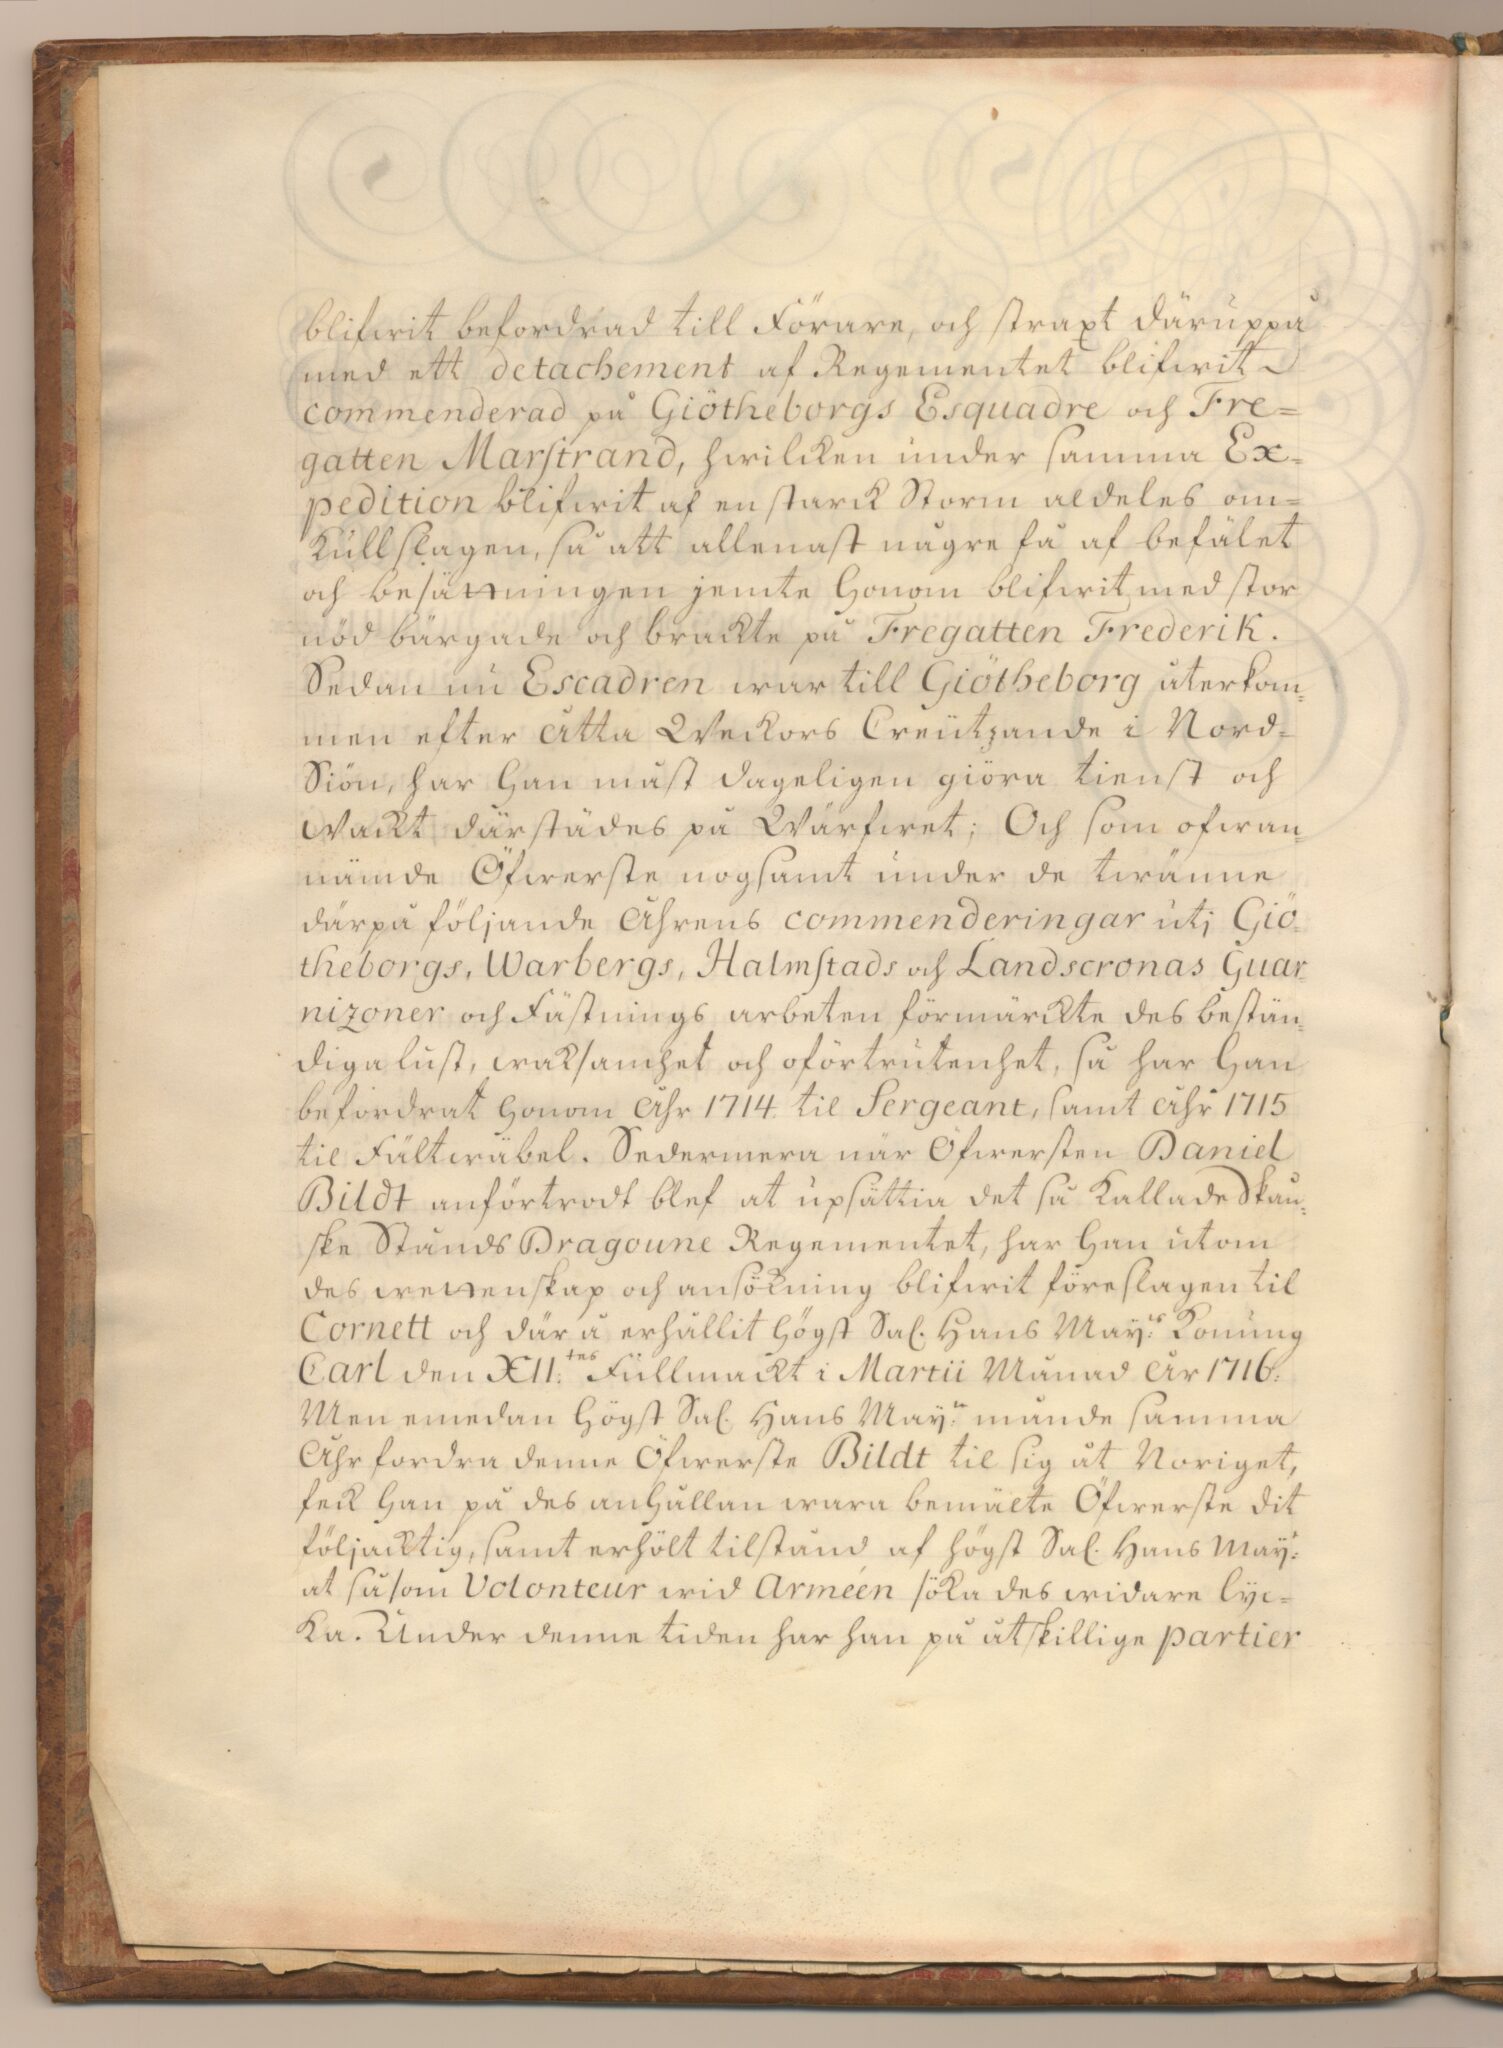 blifwit befordrad till Förare, och straxt däruppå
med ett detachement af Regementet blifwit
commenderad på Giötheborgs Esquadre och Fre=
gatten Marstrand, hwilcken under samma Ex=
pedition blifwit af en starck Storm aldeles om=
kullslagen, så att allenast några få af befälet
och besättningen jemte honom blifwit med stor
nöd bärgade och brackte på Fregatten Frederik.
Sedan nu Escadren war till Giötheborg återkom=
men efter åtta Weckors Creutzande i Nord=
Siön, har han måst dageligen giöra tienst och
wackt därstädes på Wärfwet; Och som ofwan=
nämde Öfwerste nogsamt under de twänne
därpå följande Åhrens commenderingar utj Giö=
theborgs, Warbergs, Halmstads och Landscronas Guar=
nizoner och Fästnings arbeten förmärckte des bestän=
diga lust, waksamhet och oförtrutenhet, så har han
befordrat honom Åhr 1714. til Sergeant, samt Åhr 1715
til Fältwäbel. Sedermera när Öfwersten Daniel
Bildt anförtrodt blef at upsättia det så kallade Skån=
ske Stånds Dragoune Regementet, har han utom
des wettenskap och ansökning blifwit föreslagen til
Cornett och därå erhållit högst Sal. Hans May:ts Konung
Carl den XII:tes Fullmackt i Martii Månad År 1716.
Men emedan högst Sal. Hans May:t munde samma
Åhr fordra denne Öfwerste Bildt til sig åt Noriget,
feck han på des anhållan wara bemälte Öfwerste dit
följacktig, samt erhölt tilstånd af högst Sal. Hans May:t
at såsom Volonteur wid Arméen söka des widare lyc=
ka. Under denne tiden har han på åtskillige partier